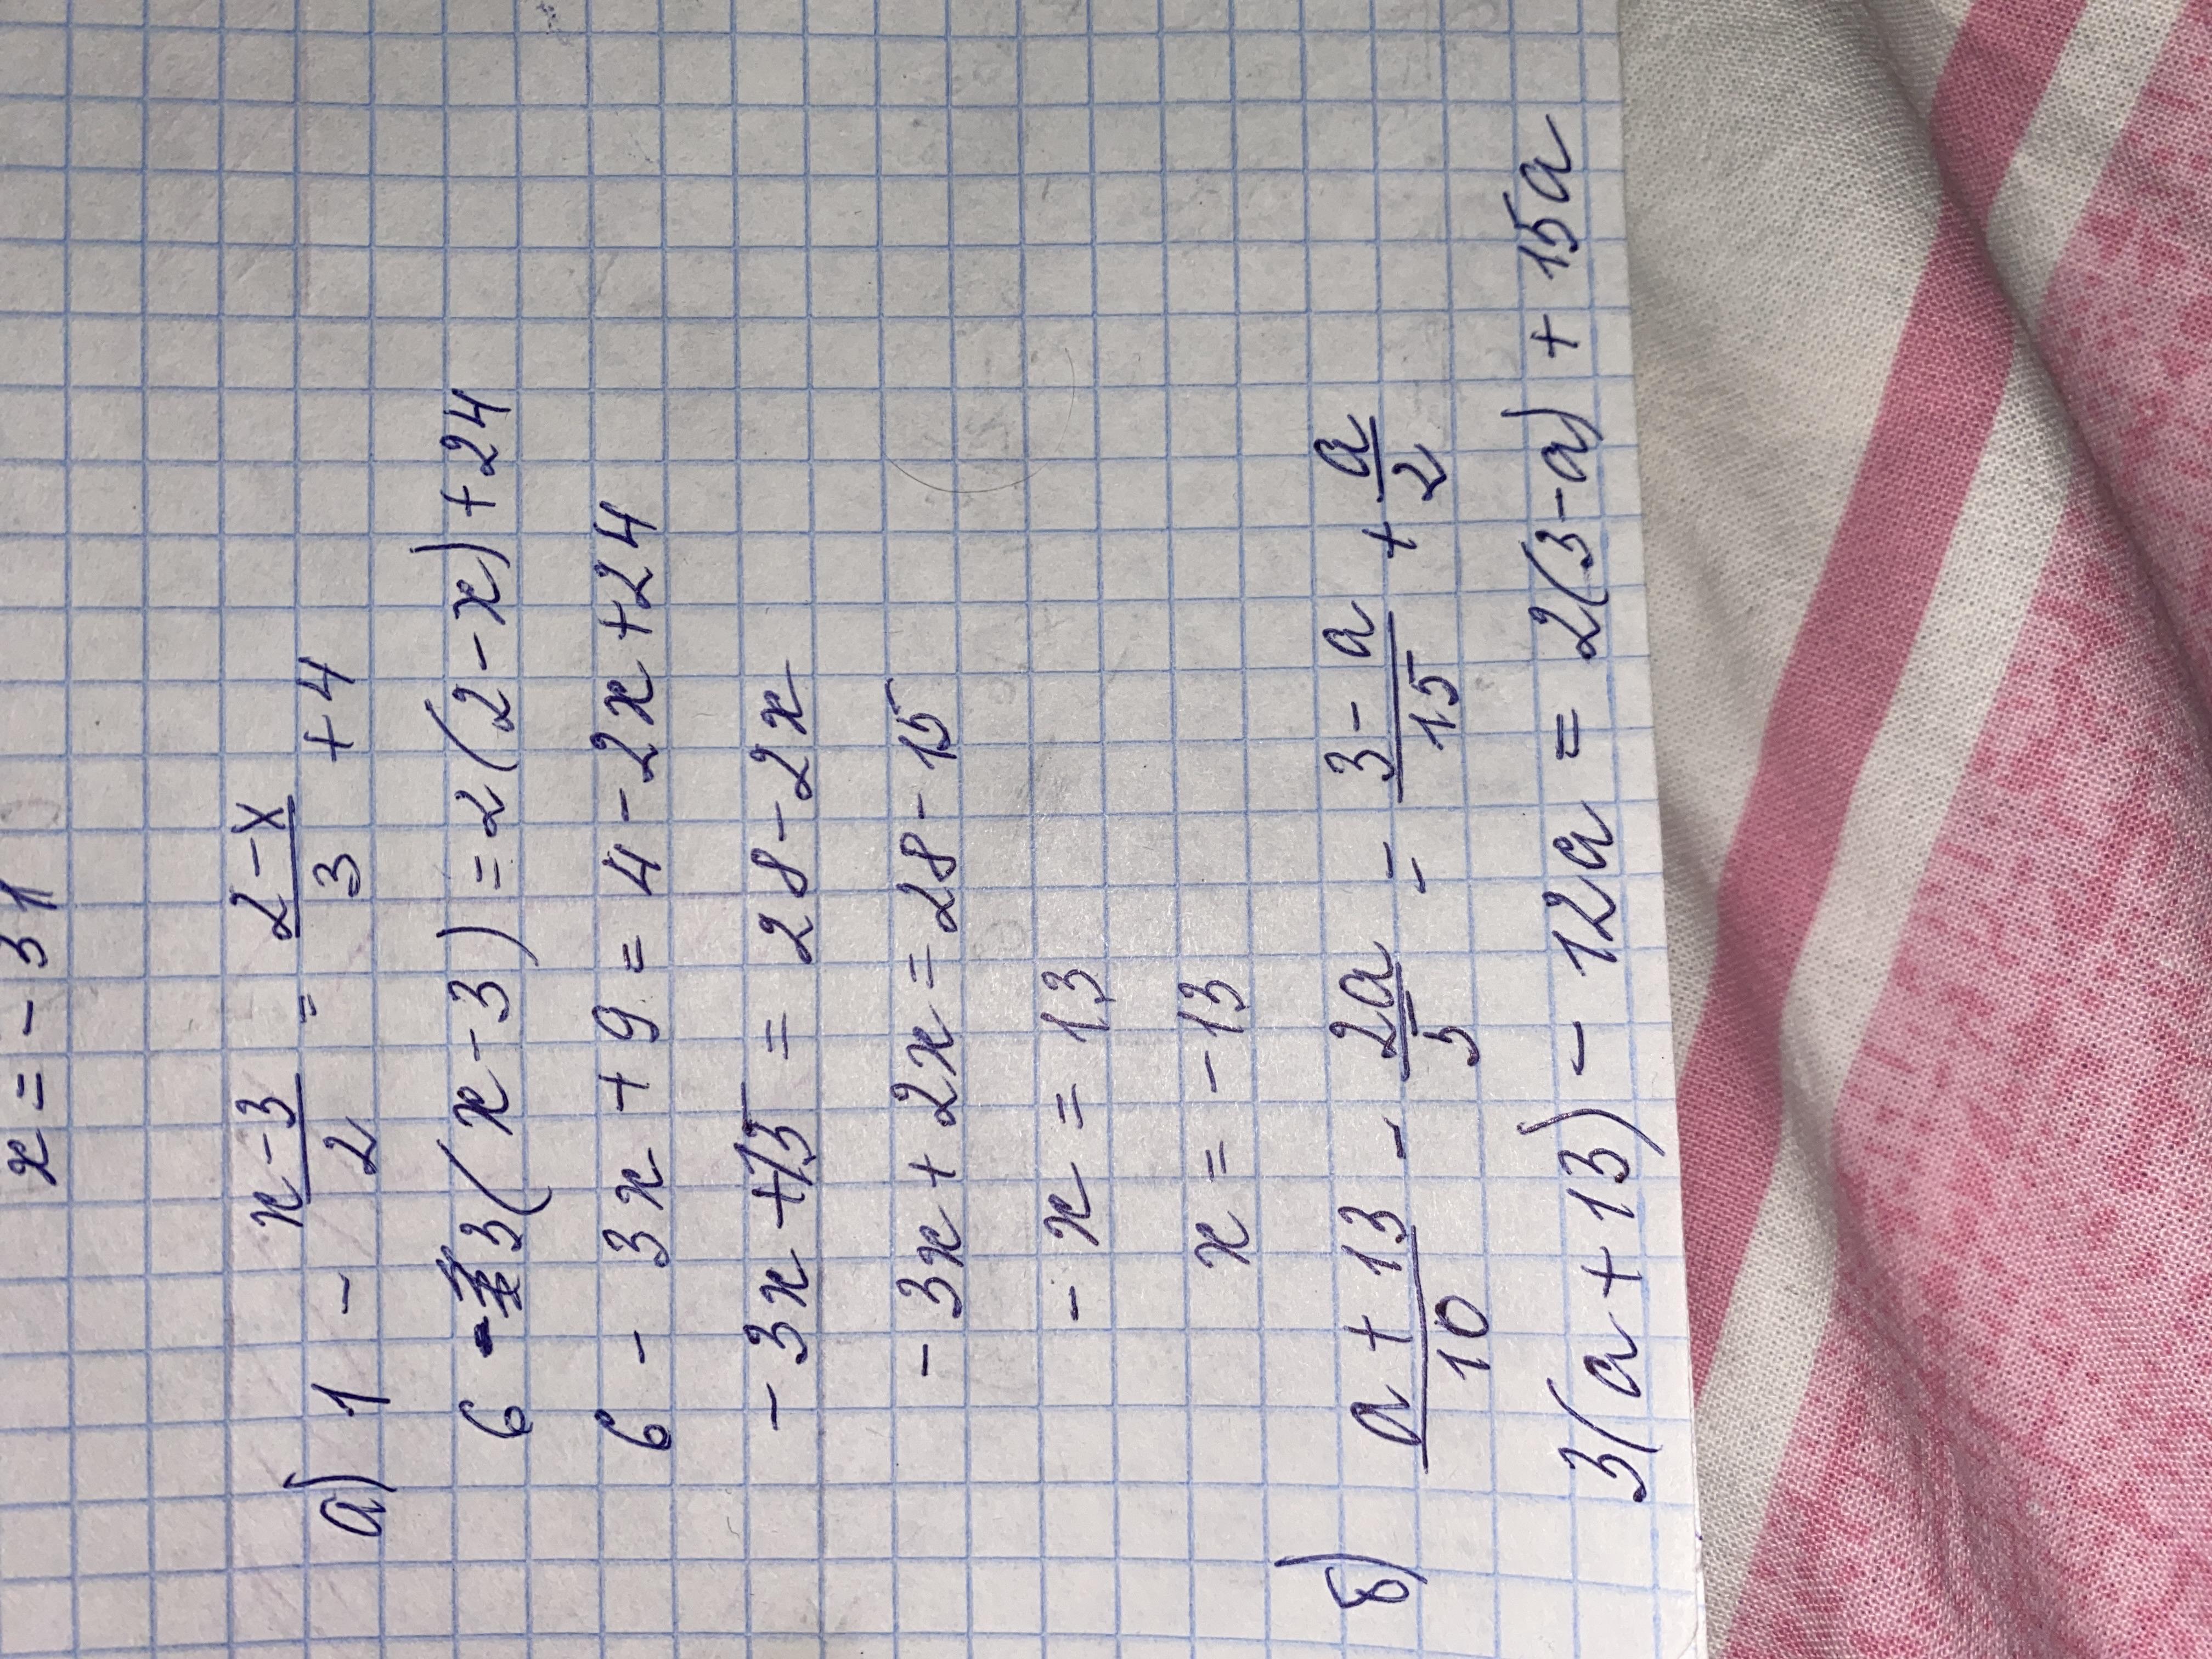 x = - 31
а) 1 - \frac{x-3}{2} = \frac{2-x}{3} + 4
6 - 3(x-3) = 2(2-x)+24
6 - 3x + 9 = 4 - 2x + 24
- 3x + 15 = 28 - 2x
- 3x + 2x = 28 - 15
- x = 13
x = - 13
б) \frac{a+13}{10} - \frac{2a}{5} = \frac{3-a}{15} + \frac{a}{2}
3(a+13) - 12a = 2(3-a) + 15a